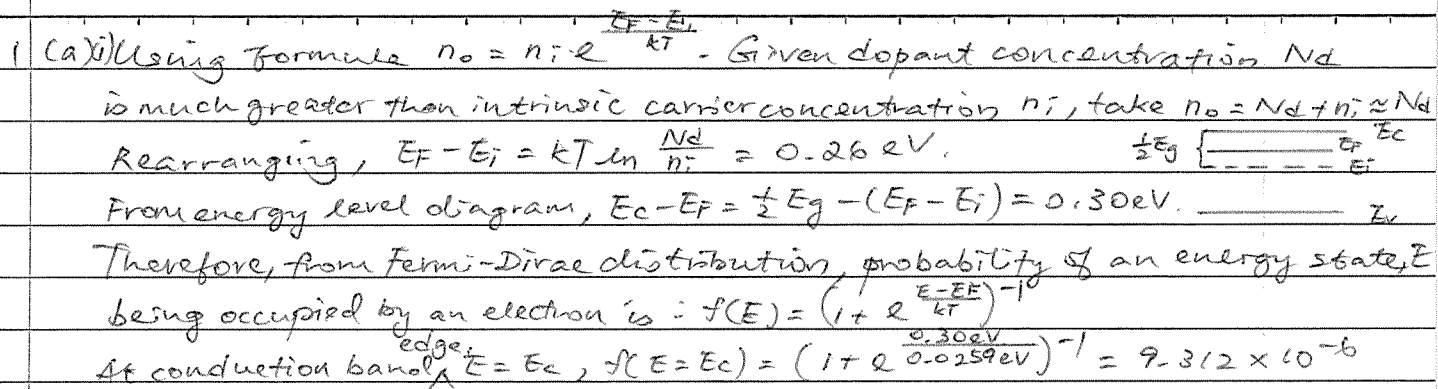 1 (a)(i) Using formula n₀ = nᵢe^((E_F - Eᵢ)/kT). Given dopant concentration Nd
is much greater than intrinsic carrier concentration nᵢ, take n₀ = Nd + nᵢ ≈ Nd
Rearranging, E_F - Eᵢ = kT ln Nd/nᵢ = 0.26 eV. ½Eg { Ec E_F Eᵢ
From energy level diagram, Ec - E_F = ½ Eg - (E_F - Eᵢ) = 0.30eV. Ev
Therefore, from Fermi-Dirac distribution, probability of an energy state, E
being occupied by an electron is : f(E) = (1 + e^((E - EF)/kT))^-1
At conduction band edge, E = Ec, f(E = Ec) = (1 + e^(0.30eV/0.0259eV))^-1 = 9.312 × 10^-6